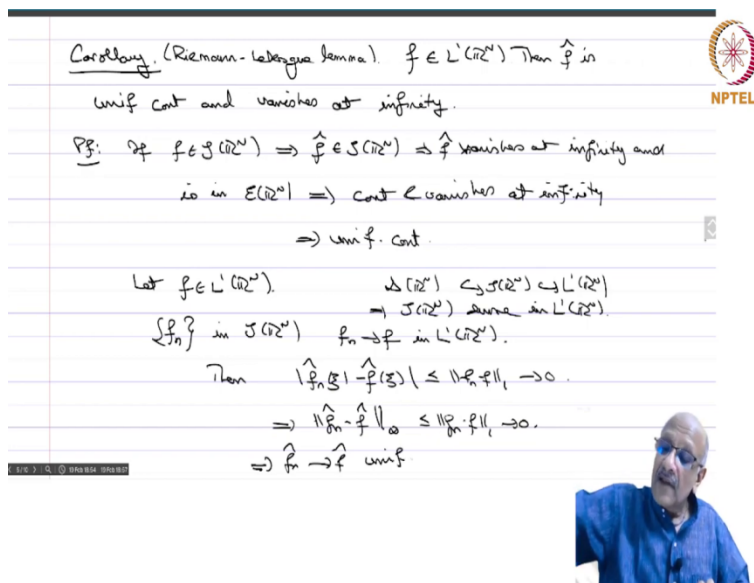 Corollary. (Riemann-Lebesgue lemma). f ∈ L¹(ℝᴺ) Then f̂ is
unif cont and vanishes at infinity.
NPTEL
Pf: If f ∈ S(ℝᴺ) ⇒ f̂ ∈ S(ℝᴺ) ⇒ f̂ vanishes at infinity and
is in Ɛ(ℝᴺ) ⇒ cont & vanishes at infinity
⇒ unif. cont.
Let f ∈ L¹(ℝᴺ). 𝒟(ℝᴺ) ↪ S(ℝᴺ) ↪ L¹(ℝᴺ)
⇒ S(ℝᴺ) dense in L¹(ℝᴺ).
{fₙ} in S(ℝᴺ) fₙ → f in L¹(ℝᴺ).
Then |f̂ₙ(ξ) - f̂(ξ)| ≤ ||fₙ-f||₁ → 0.
⇒ ||f̂ₙ - f̂||_∞ ≤ ||fₙ-f||₁ → 0.
⇒ f̂ₙ → f̂ unif.